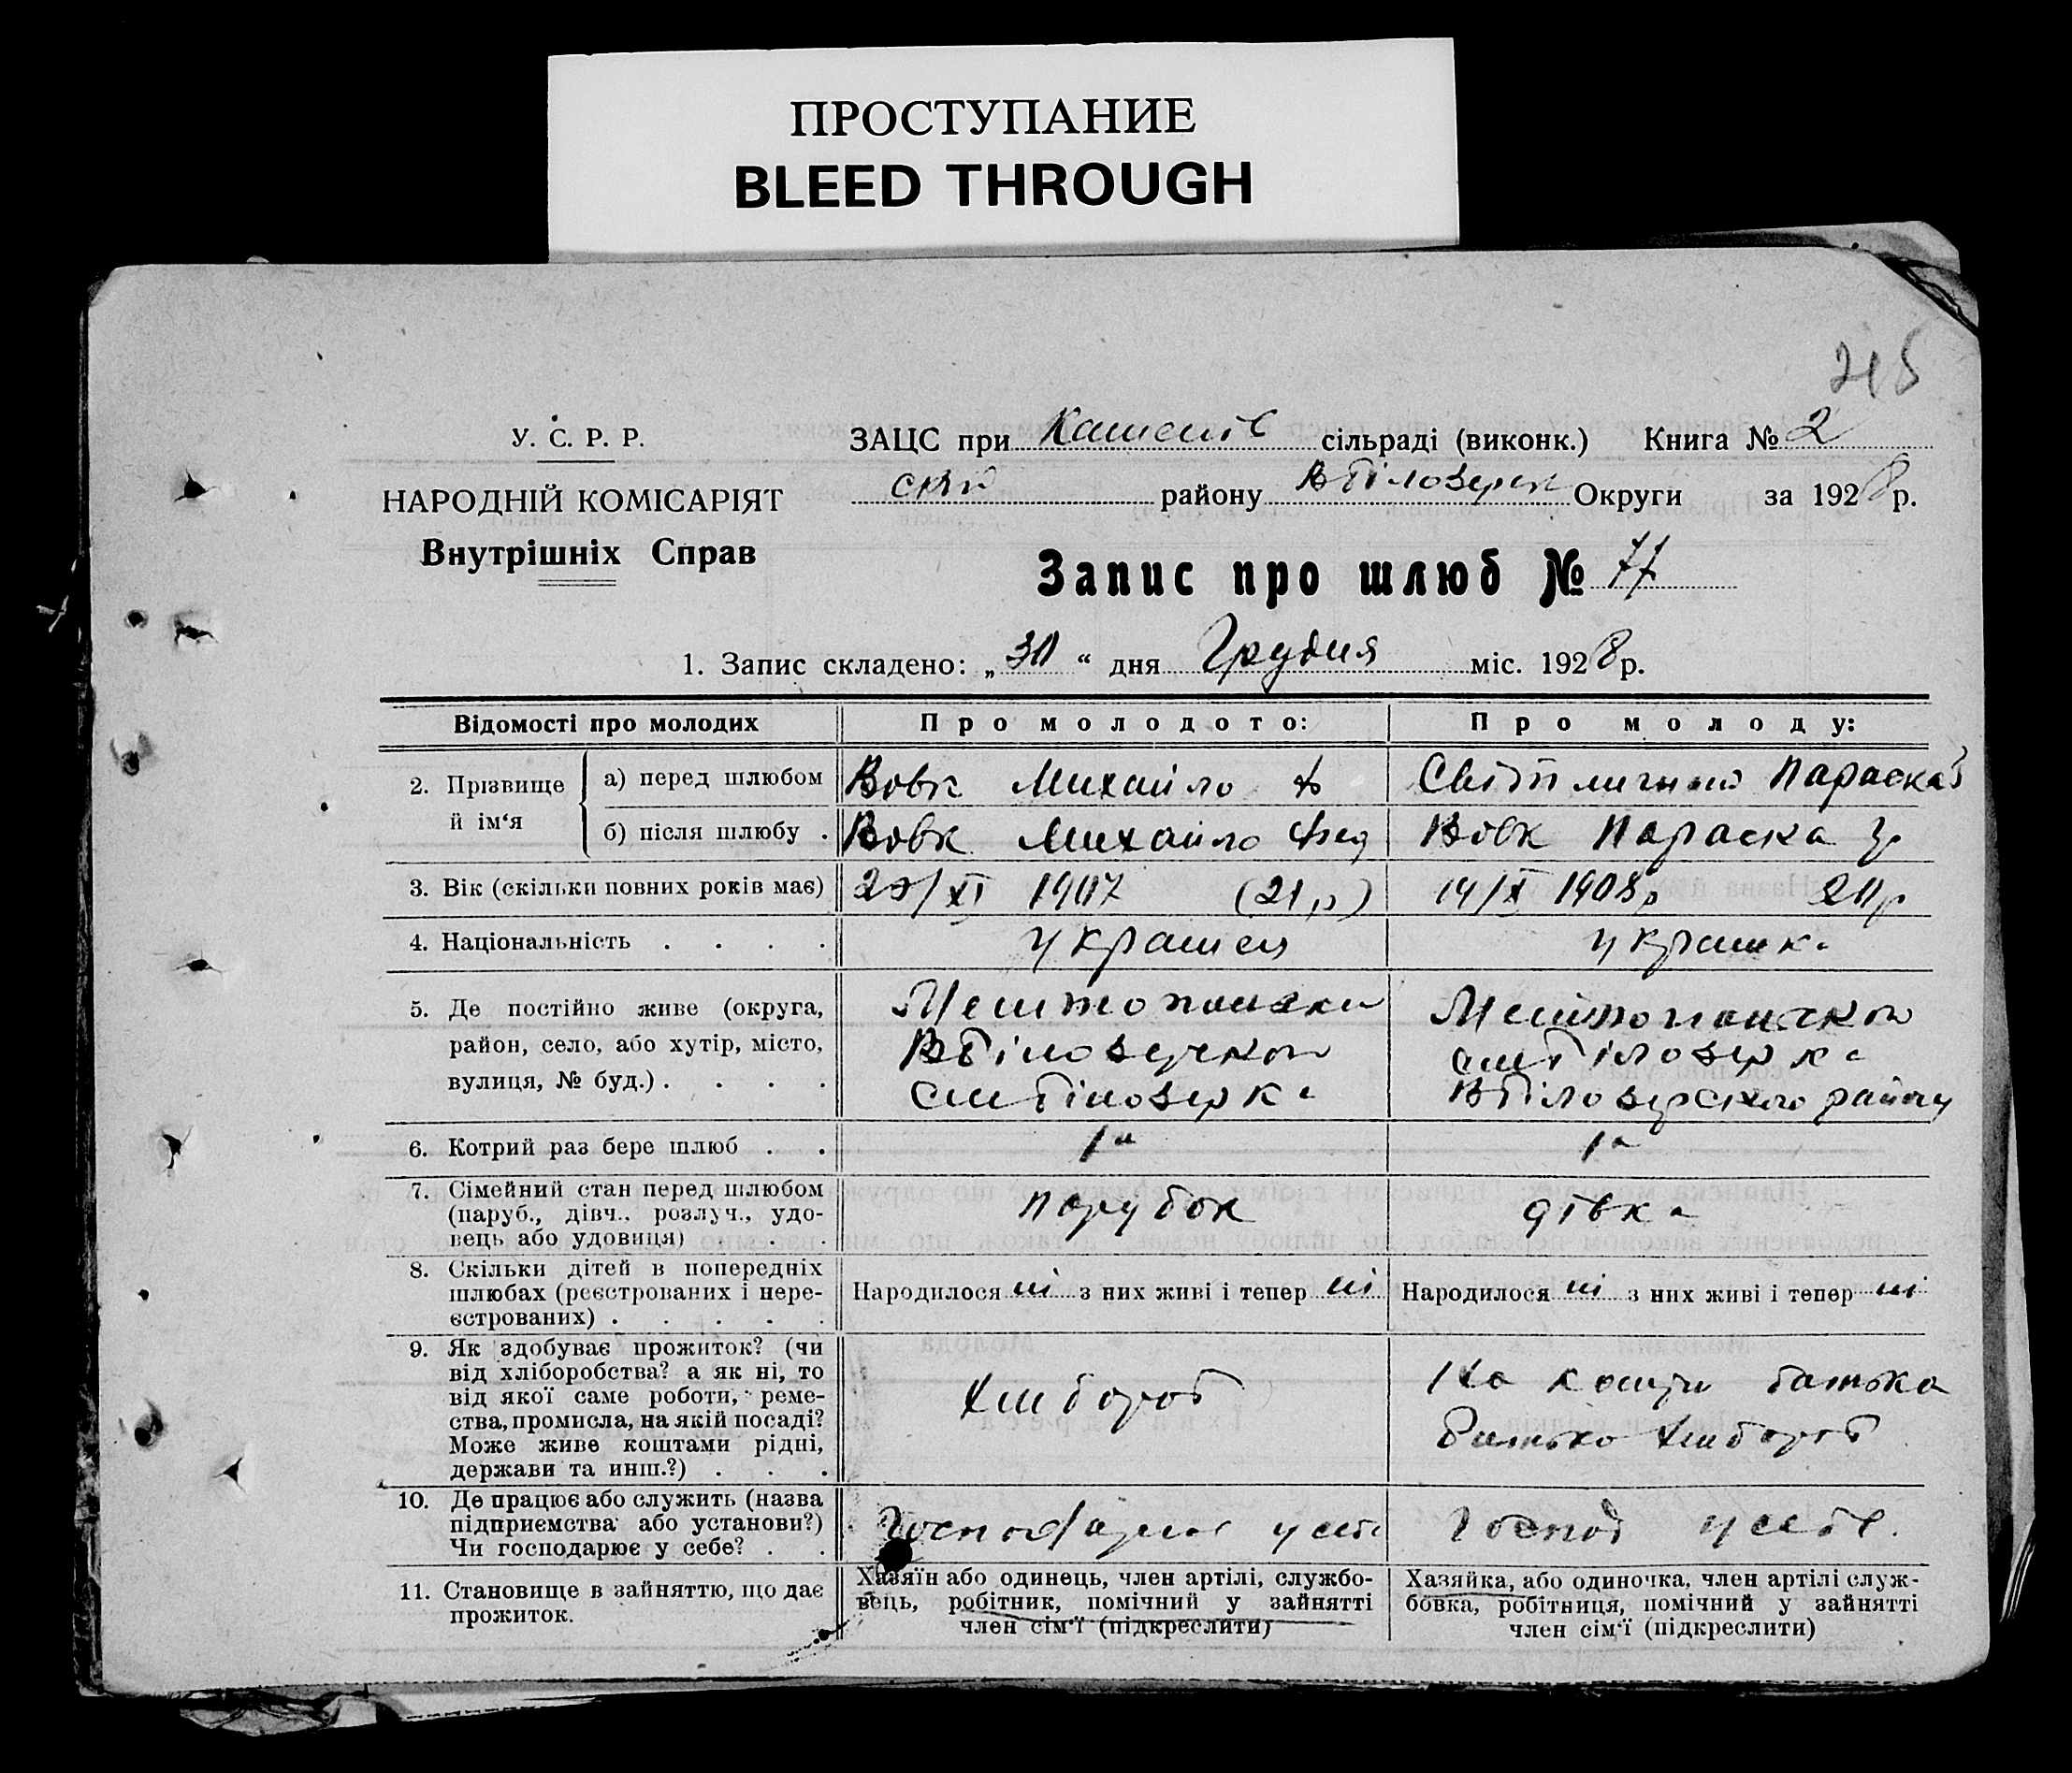 ПРОСТУПАНИЕ
BLEED THROUGH
215
У. С. Р. Р.
НАРОДНІЙ КОМІСАРІЯТ
Внутрішніх Справ
ЗАЦС при сільраді (виконк.) Книга № 2
району Округи за 1928 р.
Запис про шлюб № 77
1. Запис складено: „30“ дня Грудня міс. 1928 р.
Відомості про молодих
Про молодого:
Про молоду:
2. Прізвище й ім‘я
а) перед шлюбом
Вовк Михайло Ф
Параска З
б) після шлюбу .
Вовк Михайло Фед
Вовк Параска Зр
3. Вік (скільки повних років має)
/XI 1907 (21 р)
14/X 1908 р 20 р
4. Національність . . . .
Українец
Українк
5. Де постійно живе (округа,
район, село, або хутір, місто,
вулиця, № буд.) . . . .
Вбілозерского району
6. Котрий раз бере шлюб . .
1й
1а
7. Сімейний стан перед шлюбом
(паруб., дівч., розлуч., удо-
вець або удовиця) . . .
парубок
дівка
8. Скільки дітей в попередніх
шлюбах (реєстрованих і нере-
єстрованих) . . . . .
Народилося ні з них живі і тепер ні
Народилося ні з них живі і тепер ні
9. Як здобуває прожиток? (чи
від хліборобства? а як ні, то
від якої саме роботи, реме-
ства, промисла, на якій посаді?
Може живе коштами рідні,
держави та инш.?) . . .
Хлібороб
На кошти батька
Батько Хлібороб
10. Де працює або служить (назва
підприємства або установи?)
Чи господарює у себе? . .
Господарює у себе
Господ у себе.
11. Становище в зайняттю, що дає
прожиток.
Хазяїн або одинець, член артілі, службо-
вець, робітник, помічний у зайнятті
член сім‘ї (підкреслити)
Хазяйка, або одиночка, член артілі служ-
бовка, робітниця, помічний у зайнятті
член сім‘ї (підкреслити)